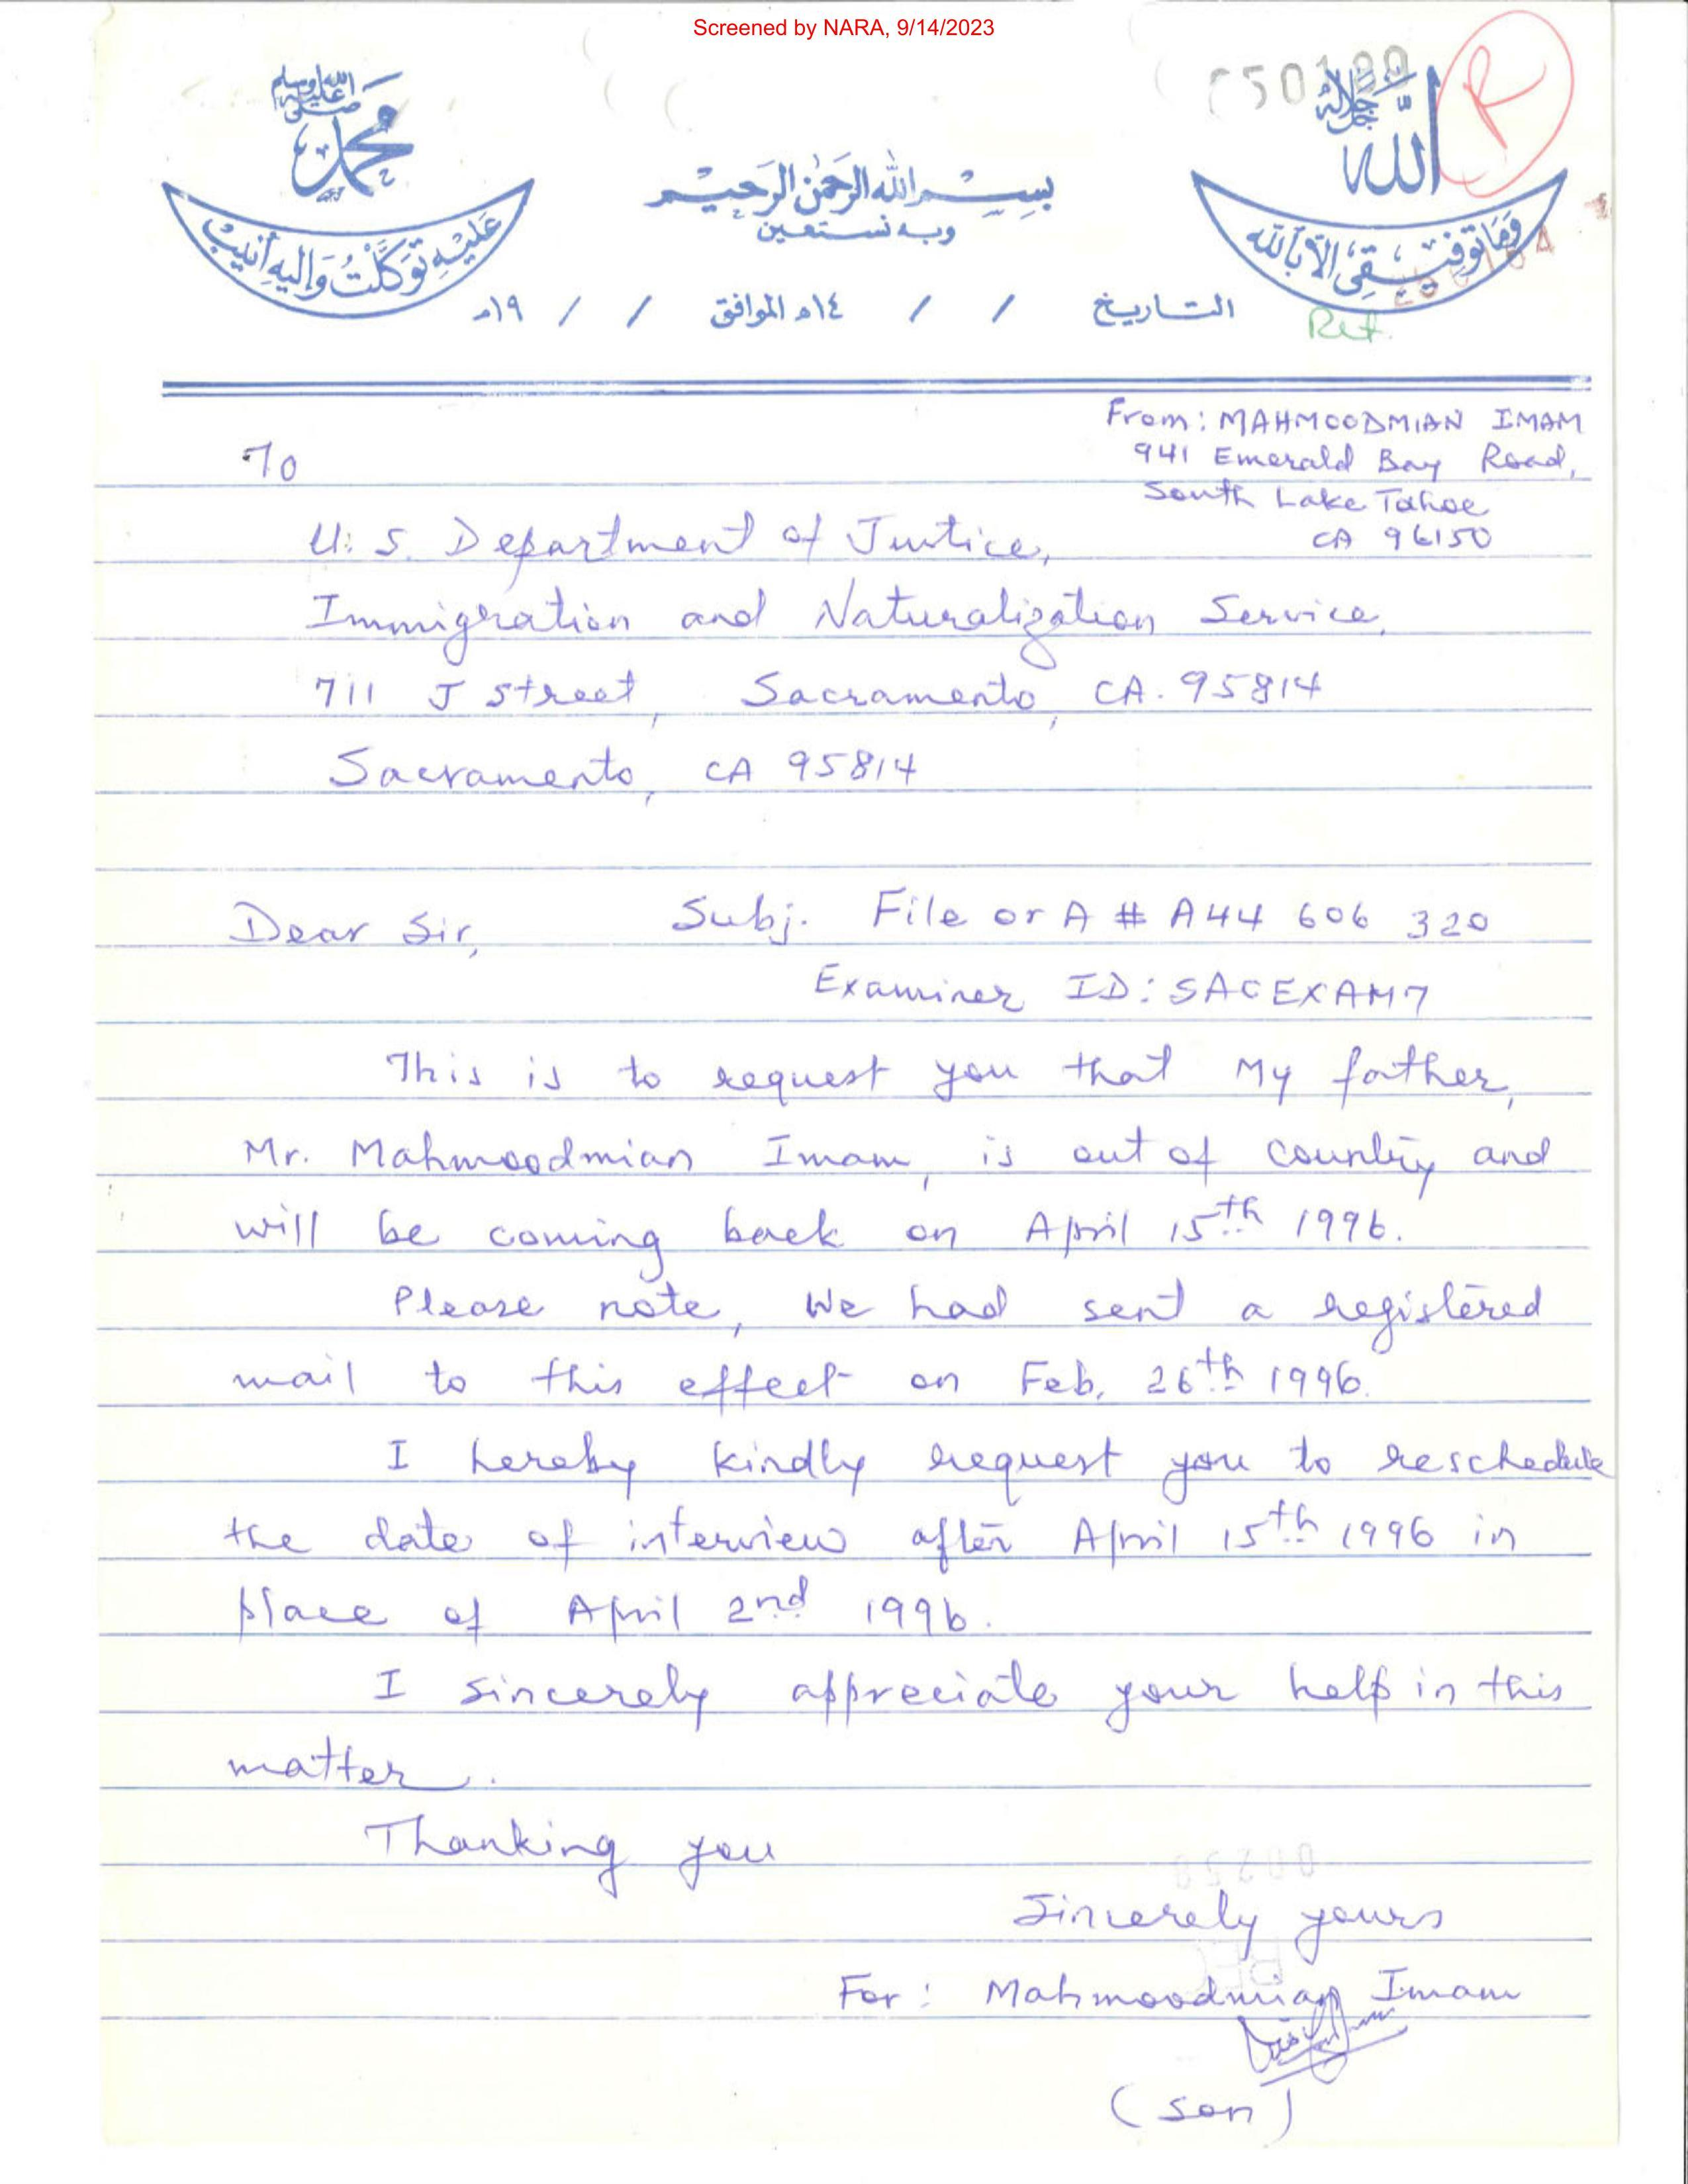 Screened by NARA, 9/14/2023
R
الله جل جلاله
محمد صلى الله عليه وسلم
بِسْمِ اللهِ الرَّحْمٰنِ الرَّحِيْمِ
وبه نستعين
وَمَا تَوْفِيْقِيْ اِلَّا بِاللهِ
عَلَيْهِ تَوَكَّلْتُ وَاِلَيْهِ اُنِيْبُ
التاريخ / / ١٤هـ الموافق / / ١٩م
Ret.
From: MAHMOODMIAN IMAM
941 Emerald Bay Road,
South Lake Tahoe
CA 96150
To
U.S. Department of Justice,
Immigration and Naturalization Service,
711 J Street, Sacramento, CA. 95814
Sacramento, CA 95814
Dear Sir, Subj. File or A # A44 606 320
Examiner ID: SACEXAM7
This is to request you that My father,
Mr. Mahmoodmian Imam, is out of country and
will be coming back on April 15th 1996.
Please note, We had sent a registered
mail to this effect on Feb. 26th 1996.
I hereby kindly request you to reschedule
the date of interview after April 15th 1996 in
place of April 2nd 1996.
I sincerely appreciate your help in this
matter.
Thanking you
Sincerely yours
For: Mahmoodmian Imam
(son)